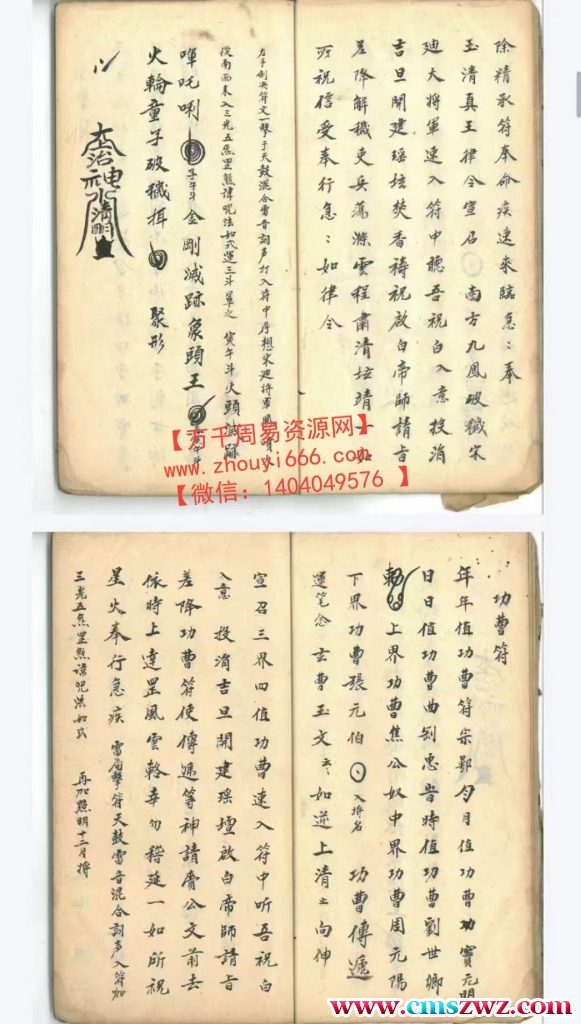 除精承符奉命疾速來臨急:奉
玉清真王律令宣召 南方九鳳破穢宋
廸大將軍速入符中聽吾祝白入意投涓
吉旦開建瑶坛焚香禱祝啟白帝師請旨
差降解穢吏兵蕩滌雲程肅清坛靖一如
所祝信受奉行急:如律令
左手劍決符文一擊于天鼓混合雷音訓声打入符中存想宋廸將軍
從南而来入三光五炁罡煞諱咒法如式運三斗罩之 寅午斗火頭滅跡
㖇吒唎 子午斗 金剛滅跡象頭王
火輪童子破穢揖 聚形
清明
【万千周易资源网】
www.zhouyi666.com
【微信：1404049576 】
功曹符
年年值功曹符宗鄂 月月值功曹功竇元明
日日值功曹曲釗忠 時時值功曹劉世卿
勅 上界功曹焦公奴中界功曹周元陽
下界功曹張元伯 入將名 功曹傳遞
運笔念玄曹玉文 如逆上清 向伸
宣召三界四值功曹速入符中听吾祝白
入意 投涓吉旦開建瑶壇啟白帝師請旨
差降功曹符使傳遞等神請賫公文前去
依時上達罡風雲輅幸勿稽延一如所祝
星火奉行急疾 雷局擊符天鼓雷音混合訓声入符如
三光五炁罡煞諱咒法如式 再加點明十二月將
www.cmszwz.com